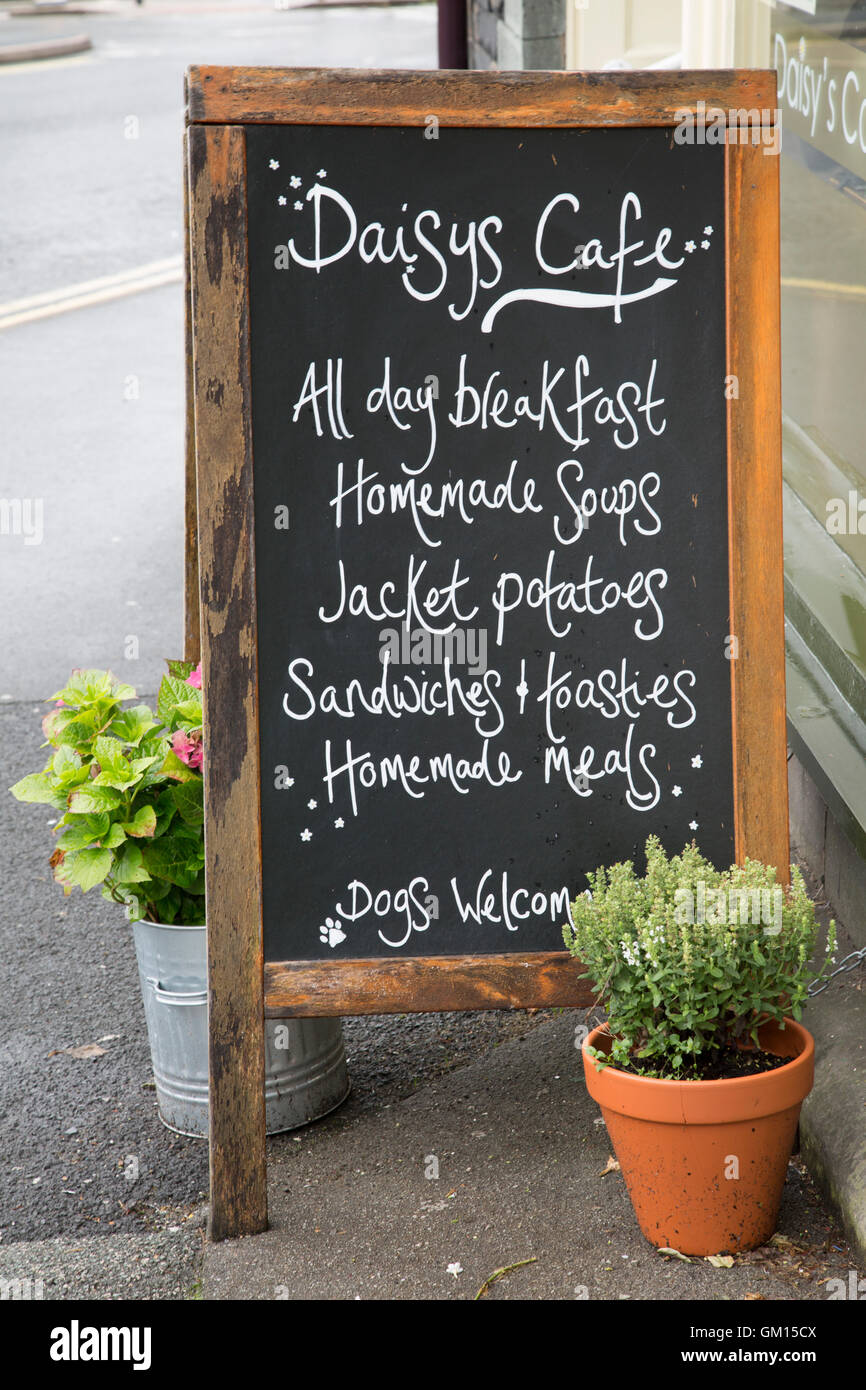 Daisy's C
Daisys Cafe
All day breakfast
Homemade Soups
Jacket potatoes
Sandwiches & toasties
Homemade meals
Dogs Welcom
alamy
Image ID: GM15CX
www.alamy.com